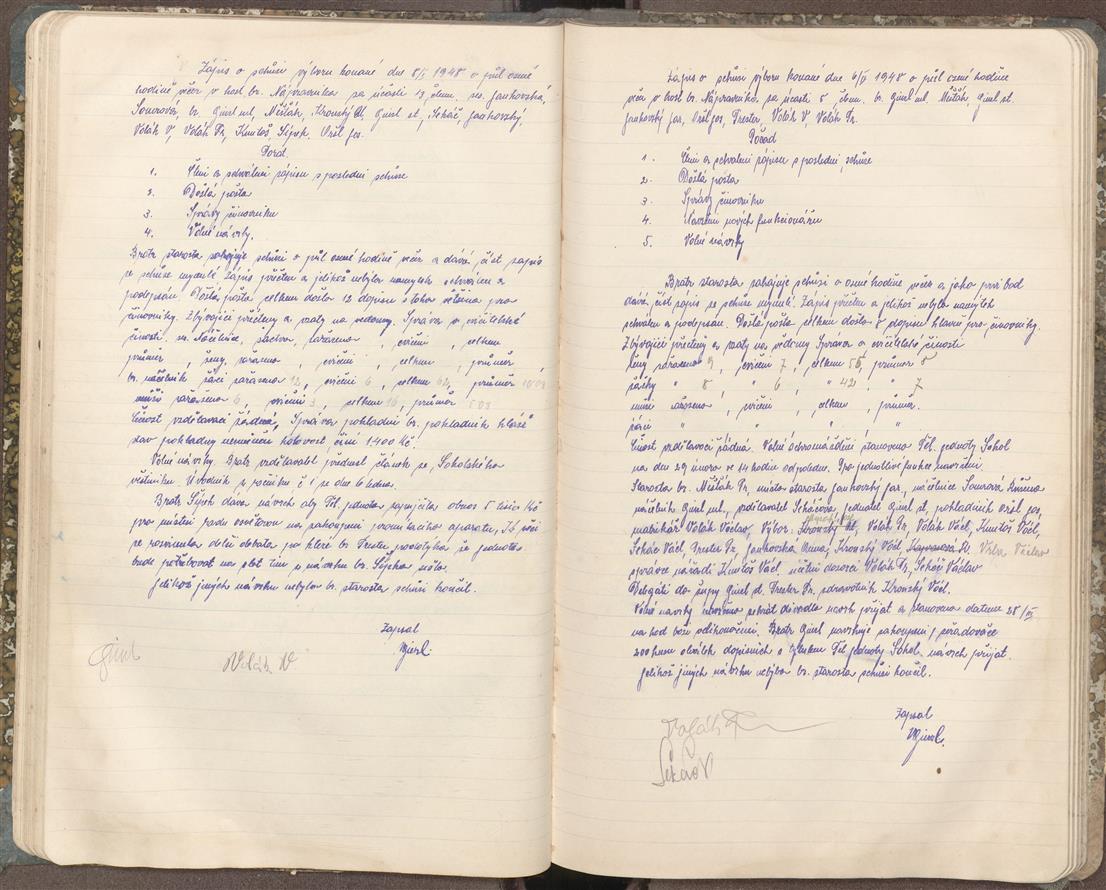 Zápis o schůzi výboru konané dne 8/I 1948 o půl osmé
hodině večer v host. br. Nápravníka za účasti 13 členů. ses. Jankovská,
Somrová, br. Giesl ml, Mišťák, Giesl st, Jankovský,
Volák V, Volák Fr, Kmitoš, Sýpek, Oriš Jos.
Pořad
1. Čtení a schválení zápisu s poslední schůze
2. Došlá pošta
3. Správy činovníku
4. Volné návrhy.
Bratr starosta zahajuje schůzi o půl osmé hodině večer a dává číst zápis
ze schůze minulé Zápis přečten a jelikož nebylo námytek schválen a
podepsán. Došlá pošta celkem došlo 12 dopisu z toho většina pro
činovníky. Zbývající přečteny a vzaty na vědomy. Správa o cvičitelské
činosti, šachva, zařazeno , cvičení , celkem ,
průměr , ženy, zařazeno , cvičení , celkem , průměr
br. náčelník žáci zařazeno 12, cvičení 6, celkem 62, průměr
muži zařazeno 6, cvičení 3, celkem 16, průměr 5 03
Činost vzdělavací žádná, Správa pokladní br. pokladník hlásí
stav pokladny nezměněn hotovost činí 1400 Kč.
Volné návrhy. Bratr vzdělavatel přednesl článek ze, Sokolského
věstníku. Úvodník z ročníku č 1 ze dne 6 ledna.
Bratr Sýpek dává návrch aby Těl. jednota zapujčila obnos 5 tisíc Kč
pro místní radu osvětovou na zakoupení promítacího aparátu. Z čehož
se rozvinula delší debata po které br. Trester podotýká že jednota
bude potřebovat na plot tím z návrhu br. Sýpka sešlo.
Jelikož jiných návrhu nebylo br. starosta schůzi končil.
Zapsal
Giesl.
Giesl
Volák V
Zápis o schůzi výboru konané dne 6/II 1948 o půl osmé hodině
večer v host br. Nápravníka, za účasti 8 členu. br. Giesl ml. Mišťák, Giesl st.
Jankovský Jar, Oriš Jos, Trester, Volák V, Volák Fr.
Pořad
1. Čtení a schválení zápisu s poslední schůze
2. Došlá pošta
3. Správy činovníku
4. Navržení nových funkcionářu
5. Volné návrhy
Bratr starosta zahajuje schůzi o osmé hodině večer a jako prví bod
dává číst zápis ze schůze minulé. Zápis přečten a jelikož nebylo námytek
schválen a podepsán. Došlá pošta celkem došlo 8 dopisu hlavně pro činovníky.
Zbývající přečteny a vzaty na vědomy Správa o cvičitelské činosti
ženy zařazeno 9, cvičení 7, celkem 56, průměr 8
žačky " 8 " 6 " 42 " 7
muži zařazeno , cvičení , celkem , průměr.
žáci " " " "
Činost vzdělavací žádná. Valné schromáždění stanoveno Těl. jednoty Sokol
na den 29 února ve 14 hodin odpoledne. Pro jednotlivé funkce navrženi.
Starosta br. Mišťák Fr, místo starosta Jankovský Jar, náčelnice Somrová Růžena
náčelník Giesl ml, vzdělavatel Scháčová, jednatel Giesl st, pokladník Oriš Jos,
matrikář Volák Václav, Výbor. Volák Fr. Volák Václ, Kmitoš Václ,
Scháč Václ, Trester Fr, Jankovská Anna, Krovský Václ Václav
správce nářadí Kmitoš Václ učetní dozorci Volák Fr, Scháč Václav
Delegáti do župy Giesl st. Trester Fr. zdravotník Krovský Václ.
Volné navrhy navrženo sehrát divadlo návrh přijat a stanoveno datum 28/III
na hod boží velikonoční. Bratr Giesl navrhuje zakoupení 1 pořadovače
200 kusu obálek dopisních s tiskem Těl jednoty Sokol návrch přijat.
Jelikož jiných návrhu nebylo br. starosta schůzi končil.
Zapsal
Giesl.
Volák Fr